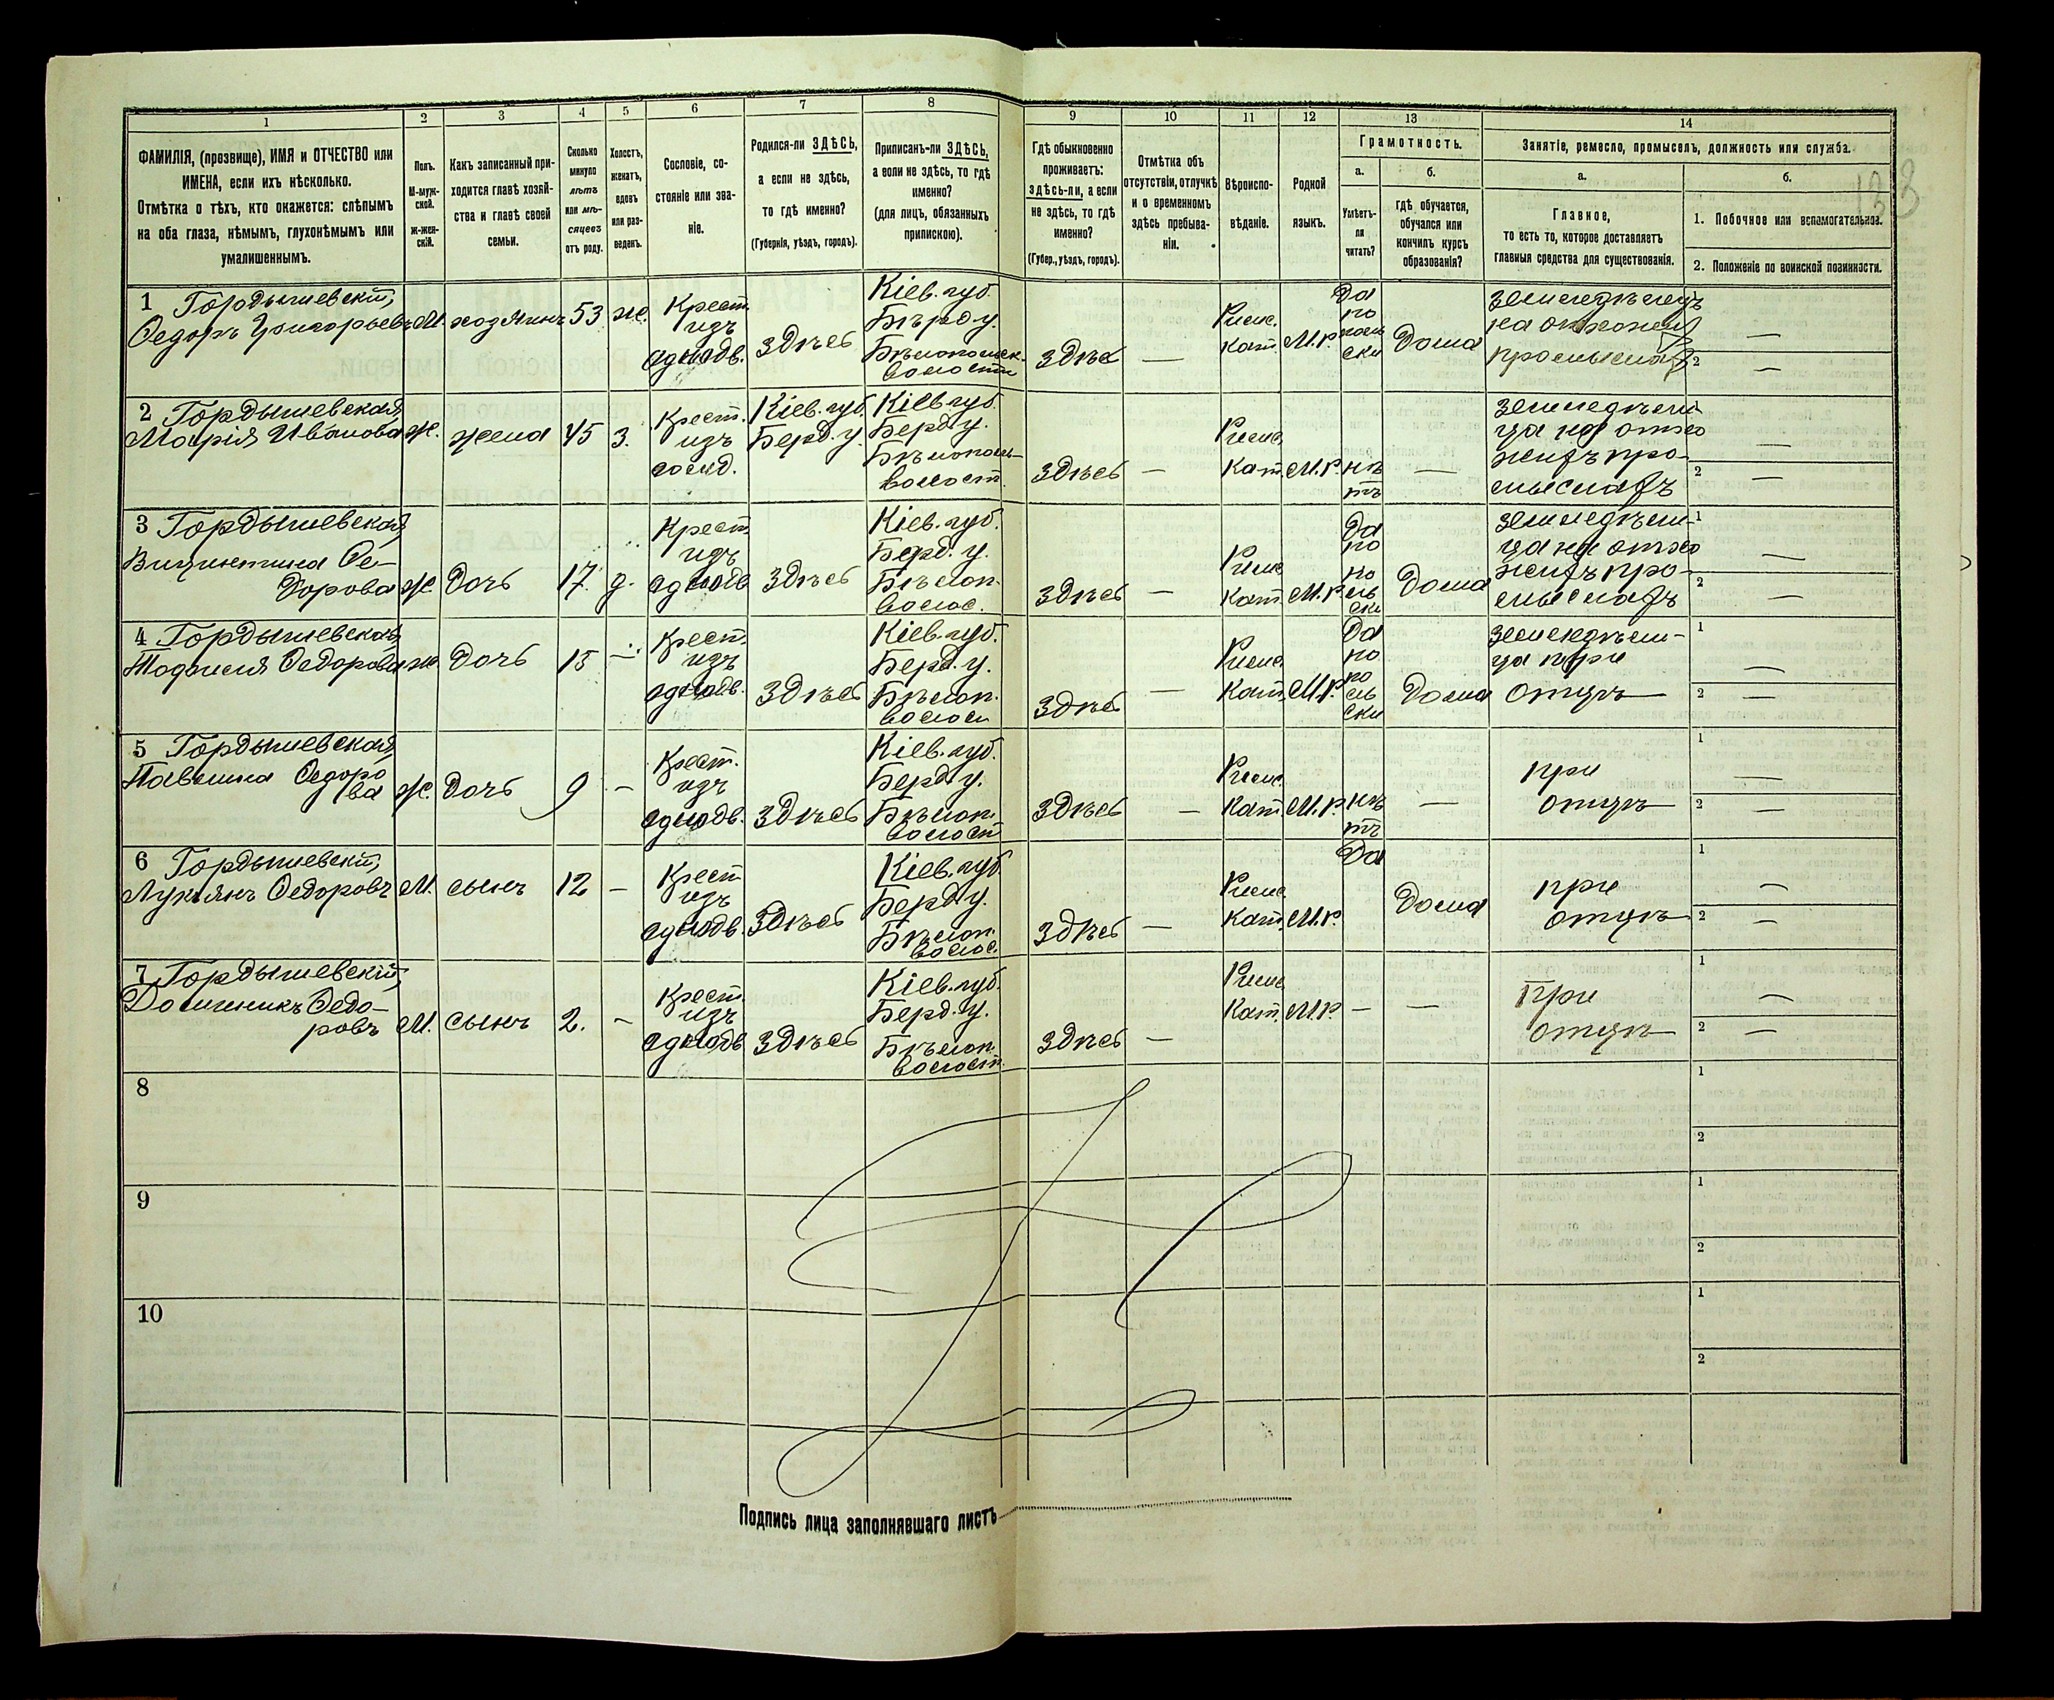 1
2
3
4
5
6
7
8
9
10
11
12
13
14
ФАМИЛІЯ, (прозвище), ИМЯ и ОТЧЕСТВО или
ИМЕНА, если ихъ нѣсколько.
Отмѣтка о тѣхъ, кто окажется: слѣпымъ
на оба глаза, нѣмымъ, глухонѣмымъ или
умалишеннымъ.
Полъ.
М-муж-
ской.
Ж-жен-
скій.
Какъ записанный при-
ходится главѣ хозяй-
ства и главѣ своей
семьи.
Сколько
минуло
лѣтъ
или мѣ-
сяцевъ
отъ роду.
Холостъ,
женатъ,
вдовъ
или раз-
веденъ.
Сословіе, со-
стояніе или зва-
ніе.
Родился-ли ЗДѢСЬ,
а если не здѣсь,
то гдѣ именно?
(Губернія, уѣздъ, городъ).
Приписанъ-ли ЗДѢСЬ,
а если не здѣсь, то гдѣ
именно?
(для лицъ, обязанныхъ
припискою).
Гдѣ обыкновенно
проживаетъ:
здѣсь-ли, а если
не здѣсь, то гдѣ
именно?
(Губер., уѣздъ, городъ).
Отмѣтка объ
отсутствіи, отлучкѣ
и о временномъ
здѣсь пребыва-
ніи.
Вѣроиспо-
вѣданіе.
Родной
языкъ.
Грамотность.
а.
Умѣетъ-
ли
читать?
б.
гдѣ обучается,
обучался или
кончилъ курсъ
образованія?
Занятіе, ремесло, промыселъ, должность или служба.
а.
Главное,
то есть то, которое доставляетъ
главныя средства для существованія.
б.
1. Побочное или вспомогательное.
2. Положеніе по воинской повинности.
1 Гордышевскій,
Ѳедоръ Григорьевъ
М.
хозяинъ
53
ж.
Крест.
изъ
однодв.
Здѣсь
Кіев. губ.
Бѣрд у.
Бѣлопольск.
волости
Здѣсь
—
Римс.
Кат.
М.р.
Да
по
поль
ски
Дома
земледѣлецъ
на отхожих
промыслах
—
2 —
2 Гордышевская,
Марія Иванова
Ж.
жена
45
З.
Крест.
изъ
солд.
Кіев. губ.
Берд. у.
Кіев губ.
Берд у.
Бѣлополь-
волост.
Здѣсь
—
Римс.
Кат.
М.р.
нѣ
тъ
—
земледѣли
ца на отхо
жихъ про-
мыслахъ
—
2 —
3 Гордышевская,
Вицентина Ѳе-
дорова
Ж.
Дочь
17.
д.
Крест
изъ
однодв
Здѣсь
Кіев. губ.
Берд. у.
Бѣлоп.
волос.
Здѣсь
—
Римс
Кат.
М.р.
Да
по
по
ль
ски
Дома
земледѣли-
ца на отхо
жихъ про-
мыслахъ
1 —
2 —
4 Гордышевская,
Теофилія Ѳедорова
ж.
Дочь
15
—
Крест.
изъ
однодв.
Здѣсь
Кіев. губ.
Берд. у.
Бѣлоп.
волост
Здѣсь
—
Римс.
Кат.
М.р.
Да
по
по
ль
ски
Дома
земледѣли-
ца при
отцѣ —
1 —
2 —
5 Гордышевская,
Павлина Ѳедоро
ва
Ж.
Дочь
9
—
Крест.
изъ
однодв.
Здѣсь
Кіев. губ.
Берд у.
Бѣлоп.
волост
Здѣсь
—
Римс.
Кат.
М.р.
нѣ
тъ
—
при
отцѣ —
1 —
2 —
6 Гордышевскій,
Лукіянъ Ѳедоровъ
М.
сынъ
12
—
Крест
изъ
однодв.
Здѣсь
Кіев. губ.
Берд у.
Бѣлоп.
волос.
Здѣсь
—
Римс.
Кат.
М.р.
Да
Дома
при
отцѣ —
1 —
2 —
7 Гордышевскій,
Доминикъ Ѳедо-
ровъ
М.
сынъ
2.
—
Крест.
изъ
однодв
Здѣсь
Кіев. губ.
Берд. у.
Бѣлоп.
волост.
Здѣсь
—
Римс
Кат.
М.р.
—
—
При
отцѣ —
1 —
2 —
8
1
2
9
1
2
10
1
2
Подпись лица заполнявшаго листъ